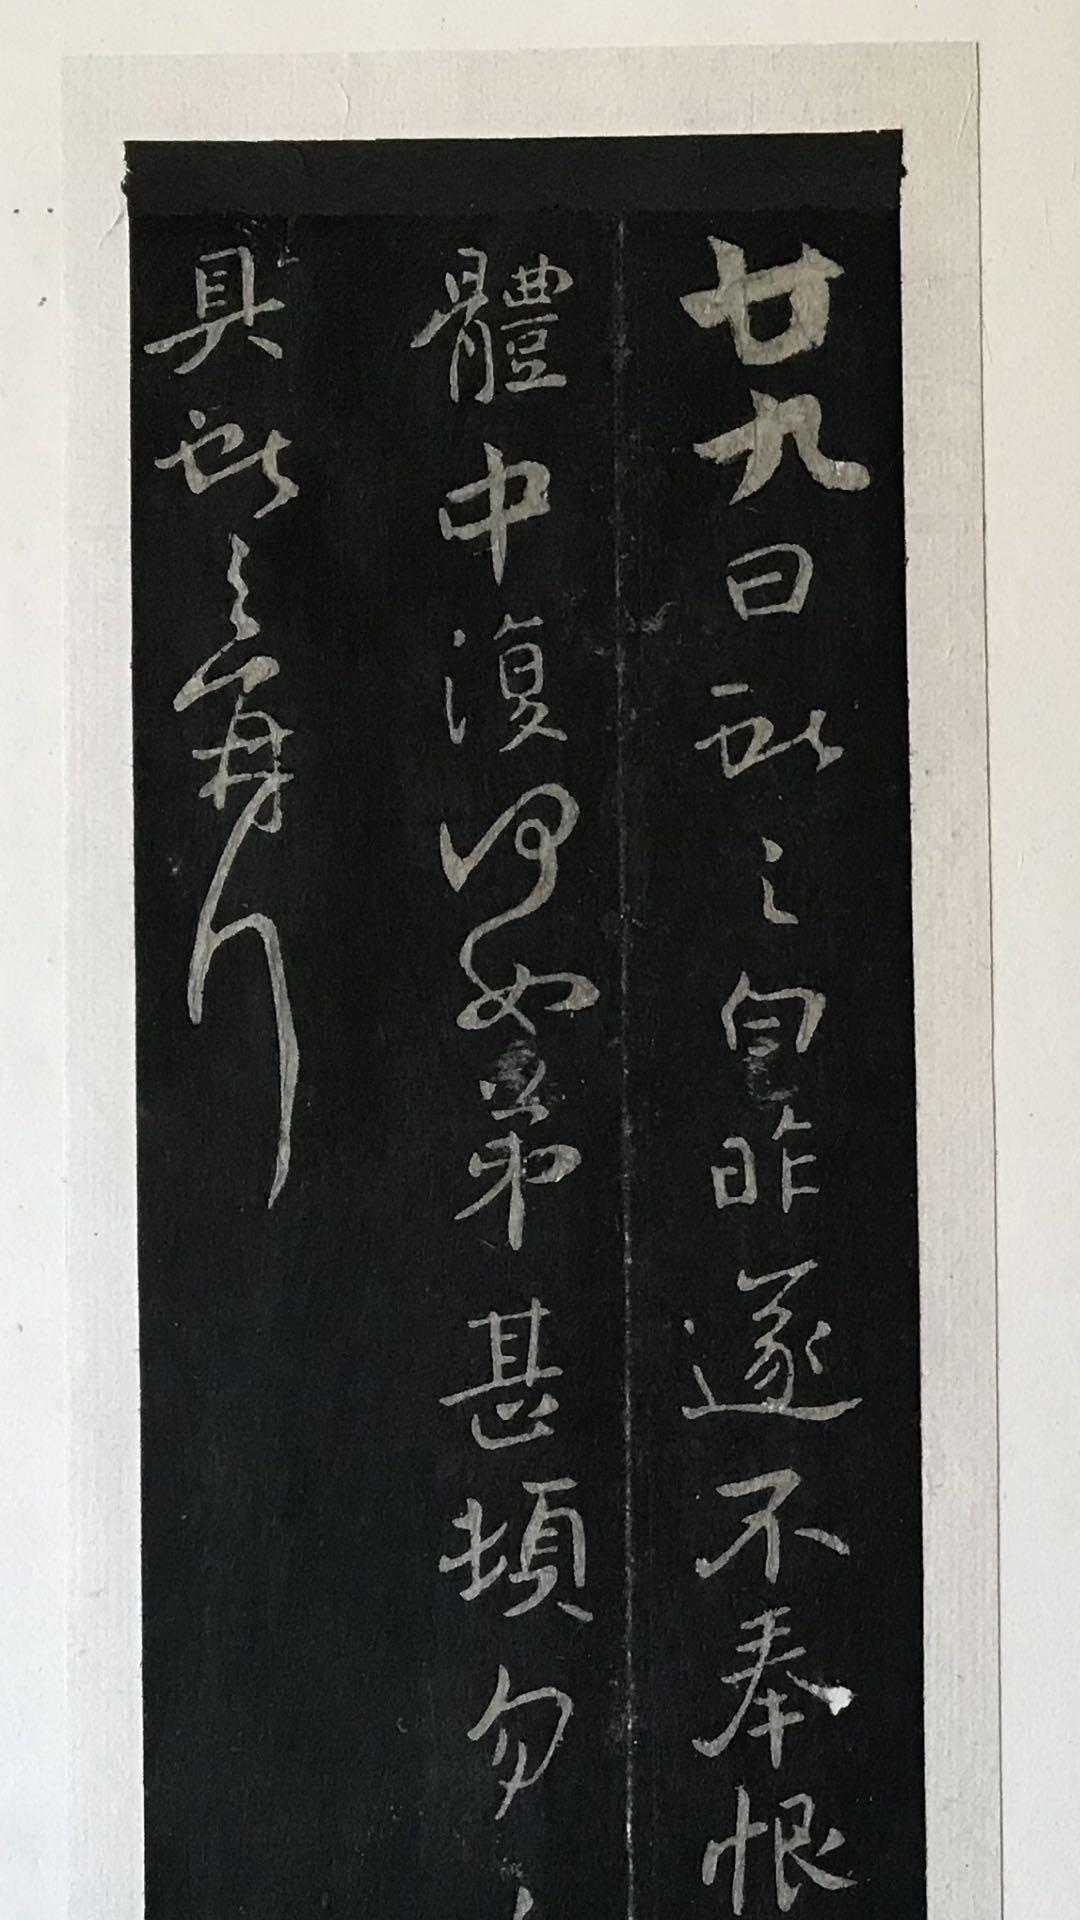 廿九日獻之白昨遂不奉恨
體中復何如弟甚頓勿
具獻之再拜